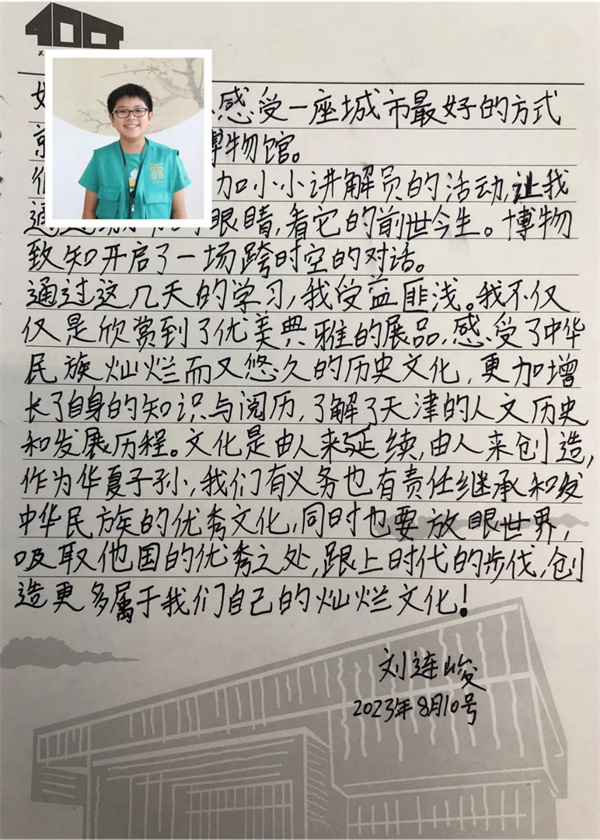 感受一座城市最好的方式
博物馆。
加小小讲解员的活动,让我
眼睛,看它的前世今生。博物
致知开启了一场跨时空的对话。
通过这几天的学习,我受益匪浅。我不仅
仅是欣赏到了优美典雅的展品,感受了中华
民族灿烂而又悠久的历史文化,更加增
长了自身的知识与阅历,了解了天津的人文历史
和发展历程。文化是由人来延续,由人来创造,
作为华夏子孙,我们有义务也有责任继承和发
中华民族的优秀文化,同时也要放眼世界,
吸取他国的优秀之处,跟上时代的步伐,创
造更多属于我们自己的灿烂文化!
刘连峻
2023年8月10号